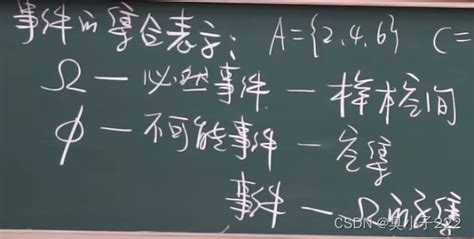 事件的集合表示: A={2,4,6} C=
Ω — 必然事件 — 样本空间
ϕ — 不可能事件 — 空集
事件 — Ω的子集
CSDN @莫小子222